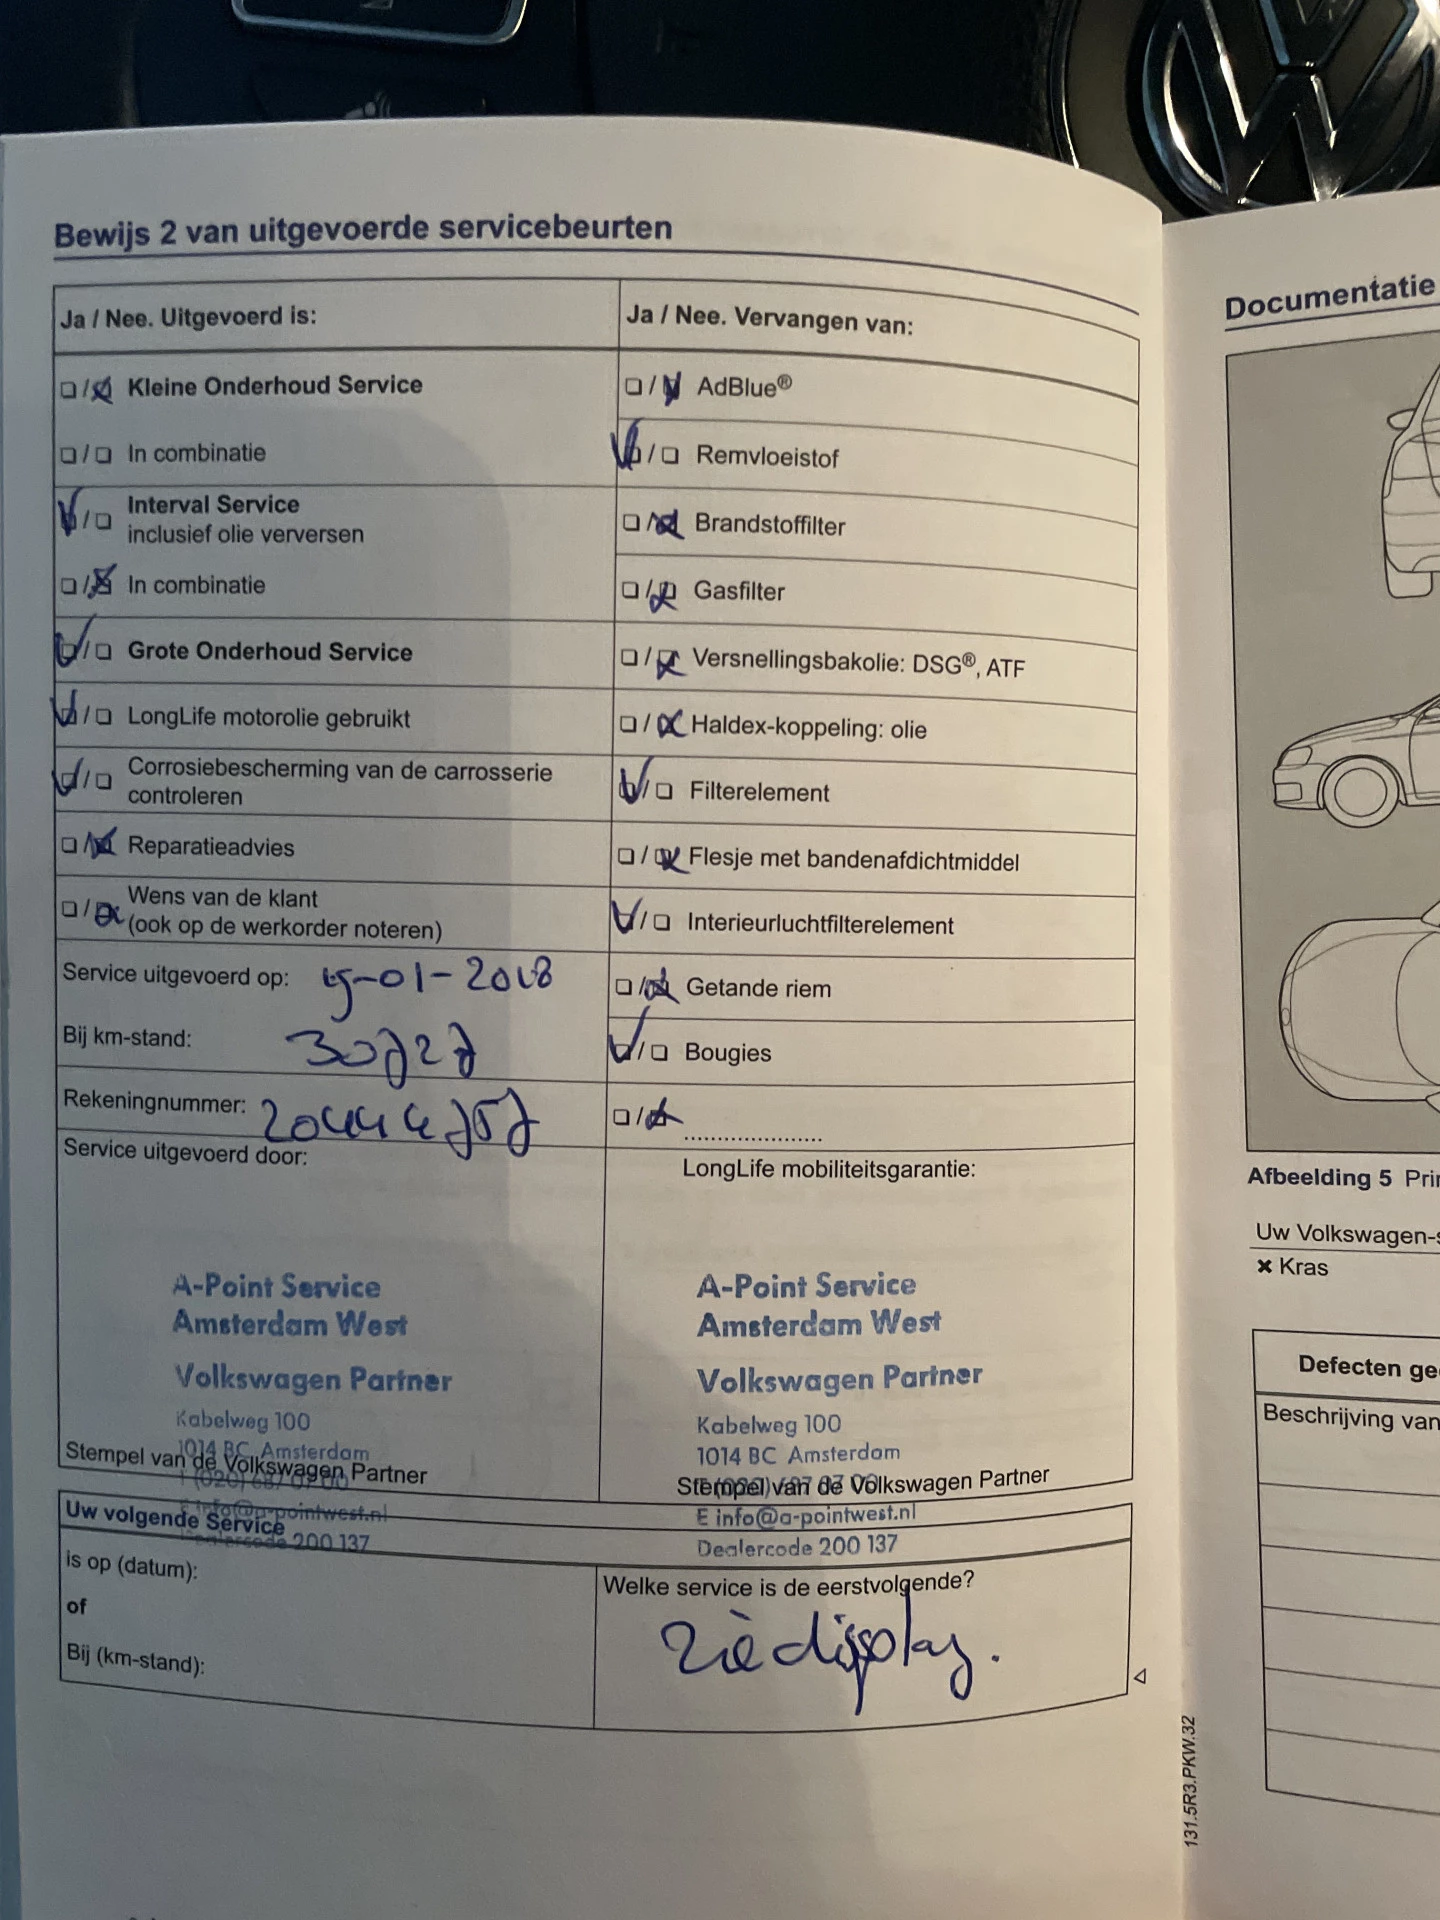 Bewijs 2 van uitgevoerde servicebeurten
Ja / Nee. Uitgevoerd is:
Kleine Onderhoud Service
In combinatie
Interval Service
inclusief olie verversen
In combinatie
Grote Onderhoud Service
LongLife motorolie gebruikt
Corrosiebescherming van de carrosserie
controleren
Reparatieadvies
Wens van de klant
(ook op de werkorder noteren)
Service uitgevoerd op:
Bij km-stand: 30727
Rekeningnummer: 20444757
Service uitgevoerd door:
A-Point Service
Amsterdam West
Volkswagen Partner
Kabelweg 100
1014 BC Amsterdam
Stempel van de Volkswagen Partner
E info@a-pointwest.nl
Dealercode 200 137
Ja / Nee. Vervangen van:
AdBlue®
Remvloeistof
Brandstoffilter
Gasfilter
Versnellingsbakolie: DSG®, ATF
Haldex-koppeling: olie
Filterelement
Flesje met bandenafdichtmiddel
Interieurluchtfilterelement
Getande riem
Bougies
LongLife mobiliteitsgarantie:
A-Point Service
Amsterdam West
Volkswagen Partner
Kabelweg 100
1014 BC Amsterdam
Stempel van de Volkswagen Partner
E info@a-pointwest.nl
Dealercode 200 137
Uw volgende Service
is op (datum):
of
Bij (km-stand):
Welke service is de eerstvolgende?
zie display.
131.5R3.PKW.32
Documentatie
Afbeelding 5
Uw Volkswagen-
× Kras
Defecten
Beschrijving van